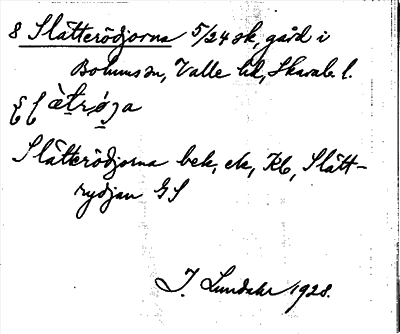 8 Slätterödjorna 5/24 sk, gård i
Bolums sn, Valle hd, Skarab. l.
Slätterödjorna bek, ek, Kb, Slätt-
rydjan GS
J. Lundahl 1928.